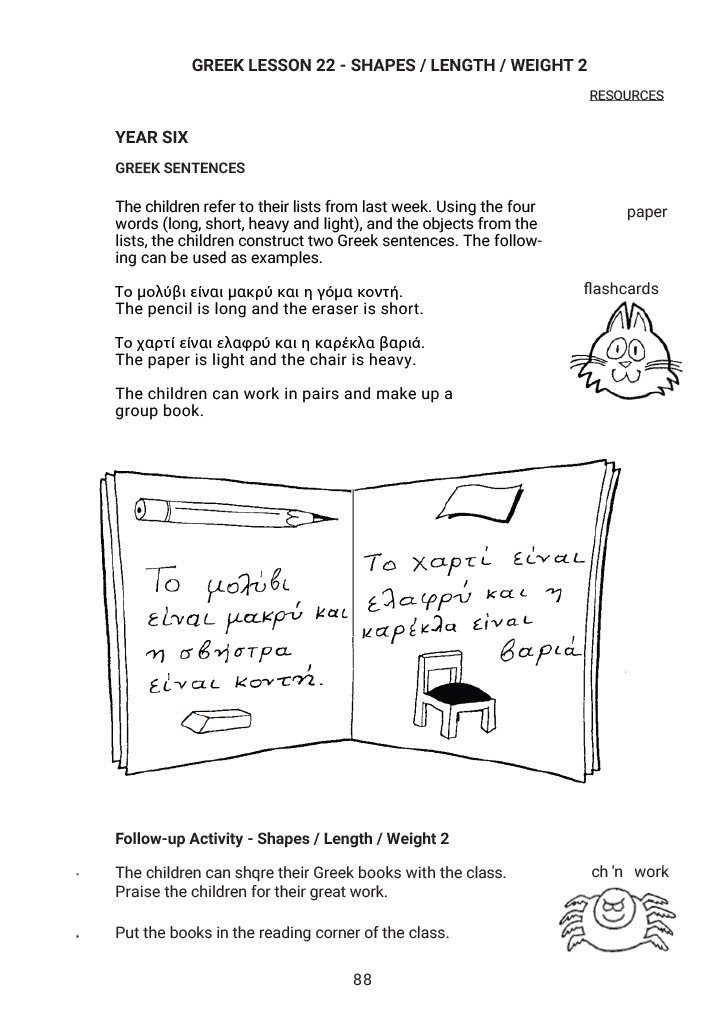 GREEK LESSON 22 - SHAPES / LENGTH / WEIGHT 2
RESOURCES
YEAR SIX
GREEK SENTENCES
The children refer to their lists from last week. Using the four
words (long, short, heavy and light), and the objects from the
lists, the children construct two Greek sentences. The follow-
ing can be used as examples.
paper
Το μολύβι είναι μακρύ και η γόμα κοντή.
The pencil is long and the eraser is short.
flashcards
Το χαρτί είναι ελαφρύ και η καρέκλα βαριά.
The paper is light and the chair is heavy.
The children can work in pairs and make up a
group book.
Το μολύβι
είναι μακρύ και
η σβήστρα
είναι κοντή.
Το χαρτί είναι
ελαφρύ και η
καρέκλα είναι
βαριά
Follow-up Activity - Shapes / Length / Weight 2
The children can shqre their Greek books with the class.
Praise the children for their great work.
ch'n work
Put the books in the reading corner of the class.
88